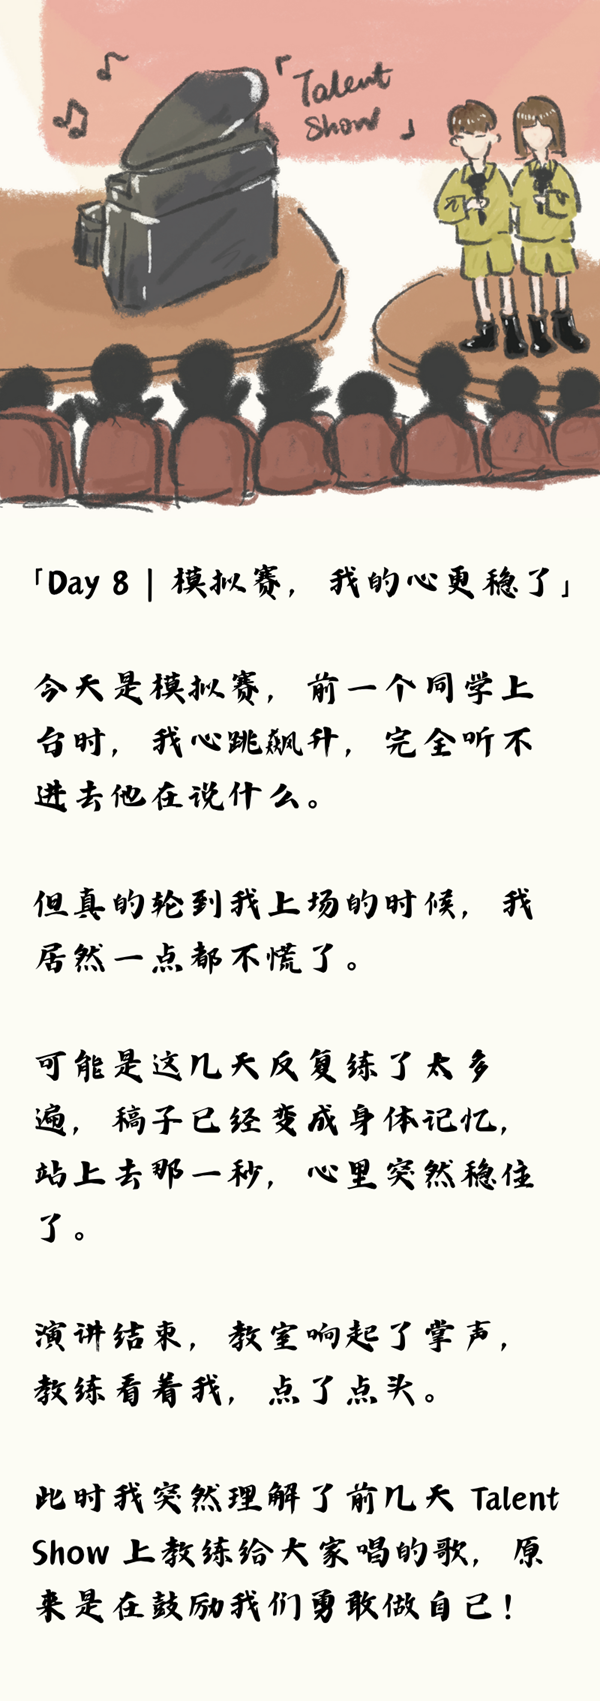 「Talent
Show」
「Day 8 | 模拟赛，我的心更稳了」
今天是模拟赛，前一个同学上
台时，我心跳飙升，完全听不
进去他在说什么。
但真的轮到我上场的时候，我
居然一点都不慌了。
可能是这几天反复练了太多
遍，稿子已经变成身体记忆，
站上去那一秒，心里突然稳住
了。
演讲结束，教室响起了掌声，
教练看着我，点了点头。
此时我突然理解了前几天 Talent
Show 上教练给大家唱的歌，原
来是在鼓励我们勇敢做自己！